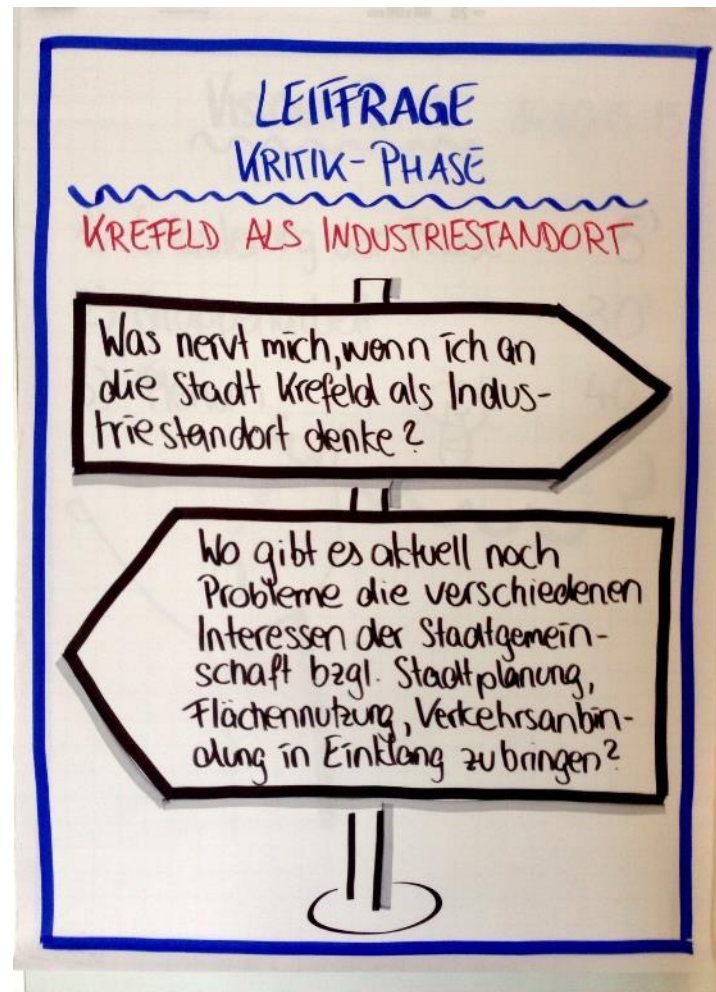 LEITFRAGE
KRITIK-PHASE
KREFELD ALS INDUSTRIESTANDORT
Was nervt mich, wenn ich an
die Stadt Krefeld als Indus-
triestandort denke?
Wo gibt es aktuell noch
Probleme die verschiedenen
Interessen der Stadtgemein-
schaft bzgl. Stadtplanung,
Flächennutzung, Verkehrsanbin-
dung in Einklang zu bringen?